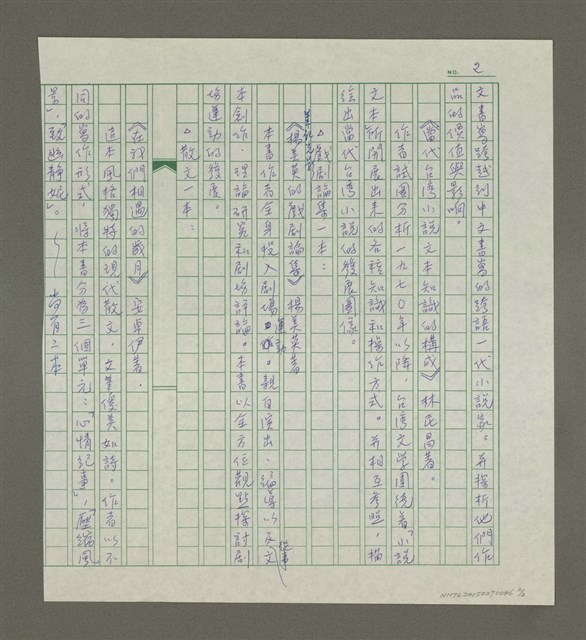 NO. 2
文書寫跨越到中文書寫的跨語一代小說家。并探析他們作
品的價值與影响。
《當代台湾小說文本知識的構成》 林民昌著。
作者試圖分析一九七0年以降,台湾文学圍繞着「小說
文本」所開展出來的各種知識和操作方式。并相互參照,描
繪出當代台湾小說的發展圖像。
△戲劇論集一本:
《楊美英的戲劇論集》 楊美英著
本書作者全身投入劇場運動。親自演出、編導以及從事文
本創作、理論研究和劇場評論。本書以全方位觀點探討劇
場運動的發展。
△散文一本:
《在我們相遇的歲月》 安卓伊著.
這本風格獨特的現代散文,文筆優美如詩。作者以不
同的寫作形式,將本書分為三個單元:「心情紀事」,「壓縮風
景」,「說些靜妮」。
NMTL20150070006 2/2